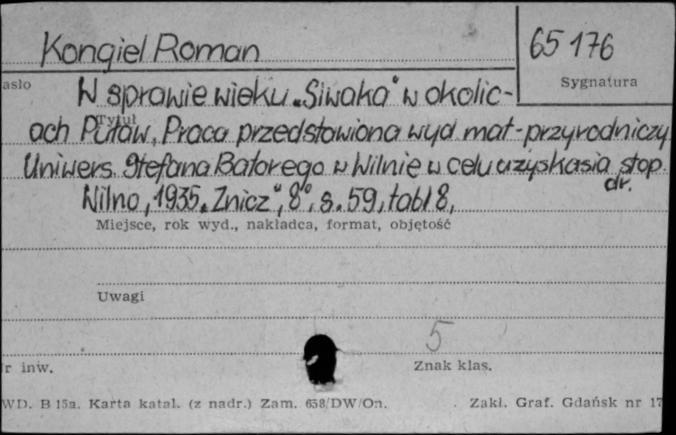 Kongiel Roman
65 176
asło
Sygnatura
W sprawie wieku „Siwaka" w okolic-
Tytuł
ach Puław, Praca przedstawiona wyd mat-przyrodniczy
Uniwers. Stefana Batorego w Wilnie w celu uzyskasia stop.
dr.
Wilno, 1935 „Znicz", 8°, s. 59, tabl 8,
Miejsce, rok wyd., nakładca, format, objętość
Uwagi
5
r inw.
Znak klas.
WD. B 15a. Karta katal. (z nadr.) Zam. 638/DW/On.
Zakł. Graf. Gdańsk nr 17